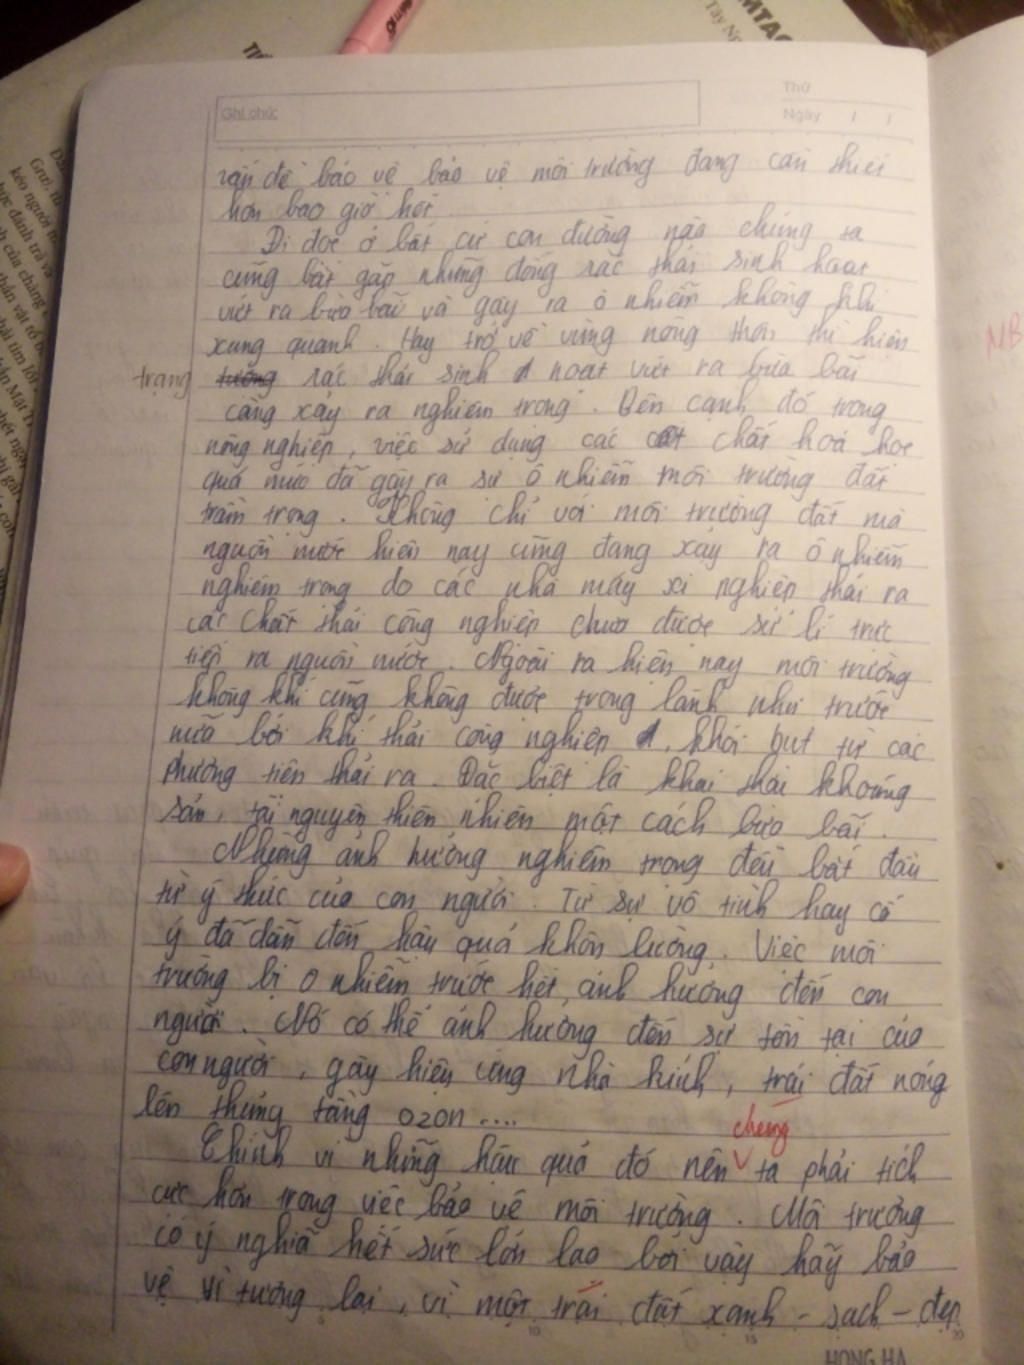 Ghi chú:
Thứ
Ngày / /
vấn đề bảo vệ bảo vệ môi trường đang cần thiết
hơn bao giờ hết.
Đi dọc ở bất cứ con đường nào chúng ta
cũng bắt gặp những đống rác thải sinh hoạt
vứt ra bừa bãi và gây ra ô nhiễm không khí
xung quanh. Hay trở về vùng nông thôn thì hiện
trạng tượng rác thải sinh hoạt vứt ra bừa bãi
càng xảy ra nghiêm trọng. Bên cạnh đó trong
nông nghiệp, việc sử dụng các chất hoá học
quá mức đã gây ra sự ô nhiễm môi trường đất
trầm trọng. Không chỉ với môi trường đất mà
nguồn nước hiện nay cũng đang xảy ra ô nhiễm
nghiêm trọng do các nhà máy xí nghiệp thải ra
các chất thải công nghiệp chưa được sử lí trực
tiếp ra nguồn nước. Ngoài ra hiện nay môi trường
không khí cũng không được trong lành như trước
nữa bởi khí thải công nghiệp, khói bụi từ các
phương tiện thải ra. Đặc biệt là khai thác khoáng
sản, tài nguyên thiên nhiên một cách bừa bãi.
Những ảnh hưởng nghiêm trọng đều bắt đầu
từ ý thức của con người. Từ sự vô tình hay cố
ý đã dẫn đến hậu quả khôn lường. Việc môi
trường bị ô nhiễm trước hết, ảnh hưởng đến con
người. Nó có thể ảnh hưởng đến sự tồn tại của
con người, gây hiệu ứng nhà kính, trái đất nóng
lên thủng tầng ozon....
chúng
Chính vì những hậu quả đó nên ta phải tích
cực hơn trong việc bảo vệ môi trường. Môi trường
có ý nghĩa hết sức lớn lao bởi vậy hãy bảo
vệ vì tương lai, vì một trái đất xanh - sạch - đẹp
HONG HA